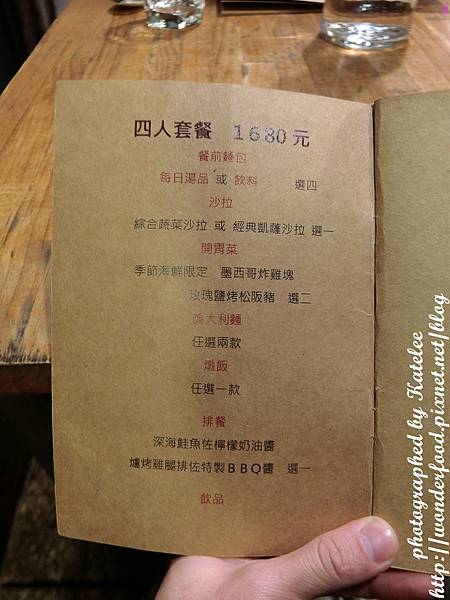 四人套餐 1680元
餐前麵包
每日湯品 或 飲料 選四
沙拉
綜合蔬菜沙拉 或 經典凱薩沙拉 選一
開胃菜
季節海鮮限定 墨西哥炸雞塊
玫瑰鹽烤松阪豬 選二
義大利麵
任選兩款
燉飯
任選一款
排餐
深海鮭魚佐檸檬奶油醬
爐烤雞腿排佐特製BBQ醬 選一
飲品
photographed by Katelee
http://wonderfood.pixnet.net/blog